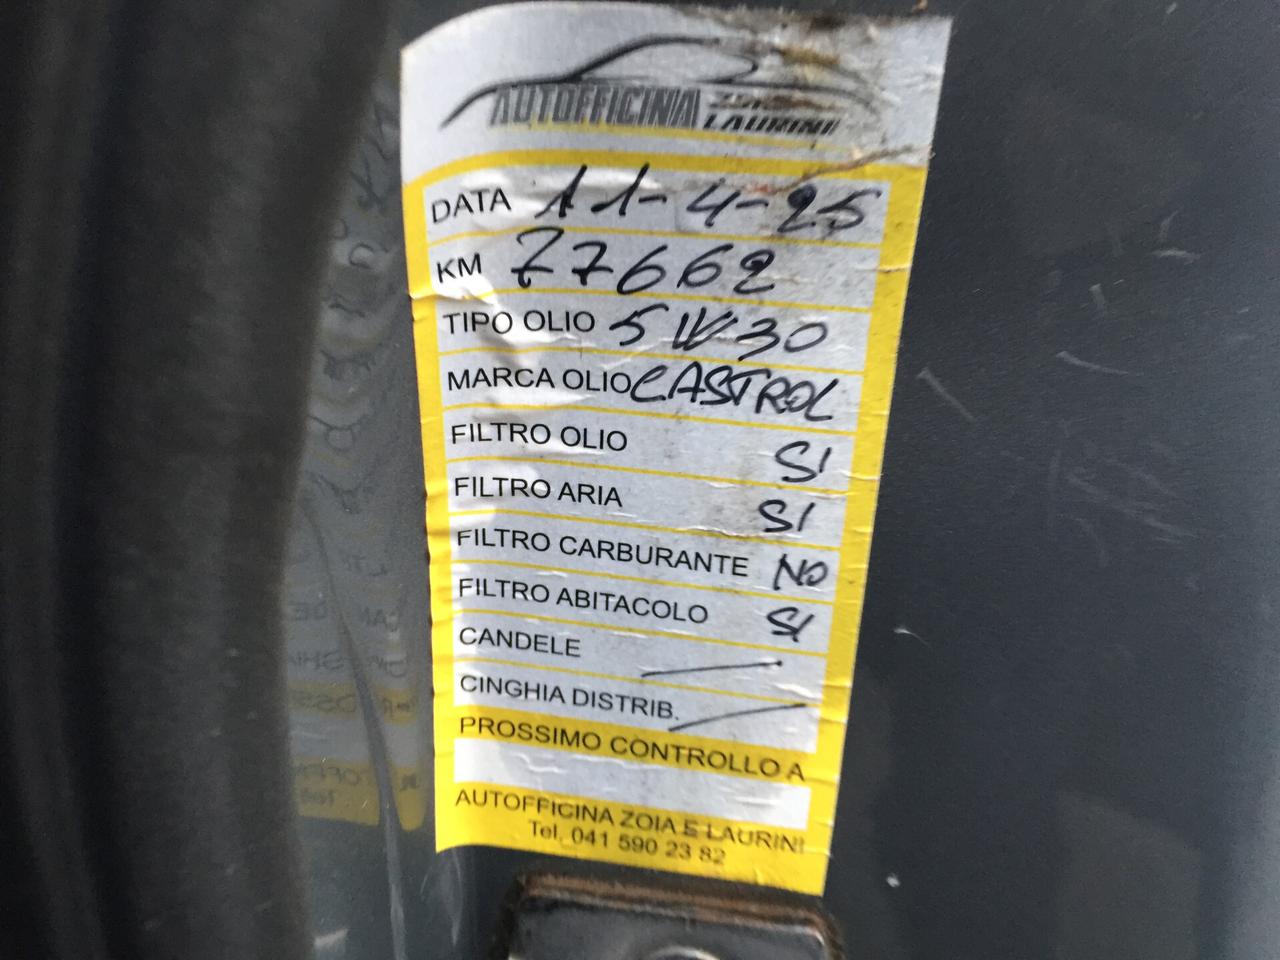 AUTOFFICINA ZOIA E
LAURINI
DATA 11-4-25
KM 77662
TIPO OLIO 5W30
MARCA OLIO CASTROL
FILTRO OLIO SI
FILTRO ARIA SI
FILTRO CARBURANTE NO
FILTRO ABITACOLO SI
CANDELE
CINGHIA DISTRIB.
PROSSIMO CONTROLLO A
AUTOFFICINA ZOIA E LAURINI
Tel. 041 590 23 82